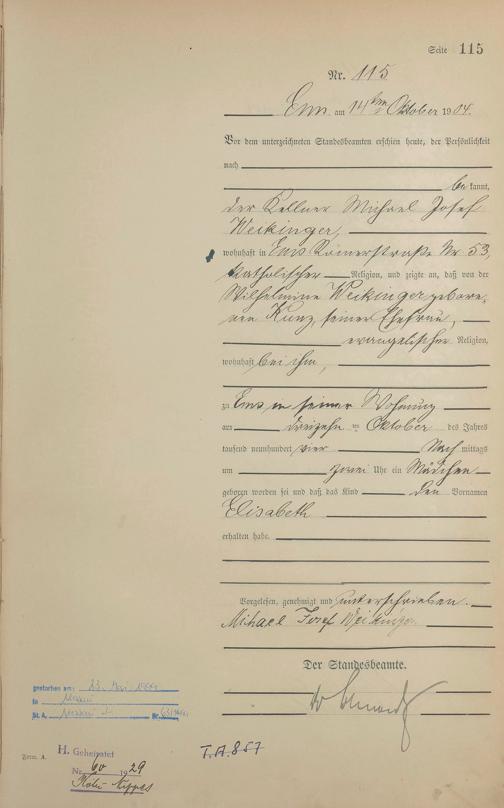 Seite 115
Nr. 115
Ems am 14ten Oktober 1904.
Vor dem unterzeichneten Standesbeamten erschien heute, der Persönlichkeit
nach
bekannt,
der Kellner Michael Josef
Weikinger,
wohnhaft in Ems Römerstraße Nr 53,
katholischer Religion, und zeigte an, daß von der
Wilhelmine Weikinger gebore-
nen Kunz, seiner Ehefrau,
evangelischer Religion,
wohnhaft bei ihm,
zu Ems in seiner Wohnung
am dreizehn ten Oktober des Jahres
tausend neunhundert vier Nach mittags
um zwei Uhr ein Mädchen
geboren worden sei und daß das Kind den Vornamen
Elisabeth
erhalten habe.
Vorgelesen, genehmigt und unterschrieben.
Michael Josef Weikinger
Der Standesbeamte.
gestorben am: 23. Mai
in
St. A. Nr.
Form. A.
H. Geheiratet
Nr. 60 1929
Köln-Nippes
T.A.857